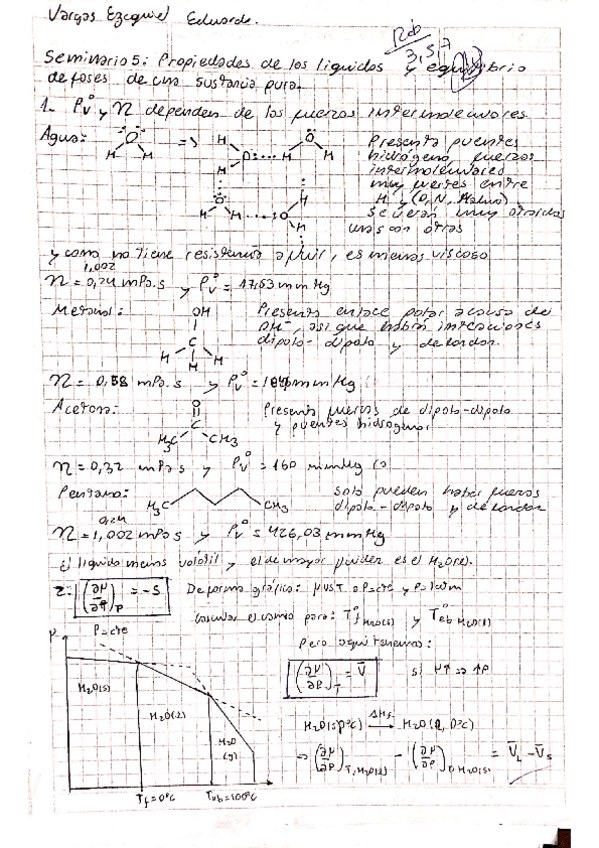 Vargas Ezequiel Eduardo.
3,5,7
Seminario 5: Propiedades de los liquidos y equilibrio
de fases de una sustancia pura.
1- Pv° y η dependen de las fuerzas intermoleculares
Agua: O H H => H O H O H Presenta puentes
hidrógeno, fuerzas
intermoleculares
muy fuertes entre
H y (O, N,
se verán muy atraídas
unas con otras
y como no tiene resistencia a fluir, es menos viscoso
1,002
η = 0,24 mPa.s y Pv° = 17,53 mm Hg
Metanol: OH Presenta enlace polar a causa de
OH⁻, así que habrá interacciones
dipolo-dipolo y de London.
H C H H
η = 0,58 mPa.s y Pv° = mmHg
Acetona: O Presenta fuerzas de dipolo-dipolo
y puentes hidrógeno.
H3C C CH3
η = 0,32 mPa s y Pv° = 160 mmHg
Pentano: H3C CH3 solo pueden haber fuerzas
dipolo-dipolo y de London
0,24
η = 1,002 mPa s y Pv° = 426,03 mmHg
El liquido menos volátil y el de mayor es el H2O(l).
2- (∂μ/∂T)P = -S De forma gráfica: μ vs T a P=cte y P=1atm
para: Tf°H2O(s) y Teb°H2O(l)
Pero aquí tenemos:
μ P=cte
(∂μ/∂P)T = V̄ si μ↑ => ↑P
H2O(s)
H2O(l)
H2O
(g)
H2O(s, 0°C) ΔHf → H2O(l, 0°C)
=> (∂μ/∂P)T, H2O(l) - (∂μ/∂P)T, H2O(s) = V̄L - V̄s
Tf=0°C Teb=100°C